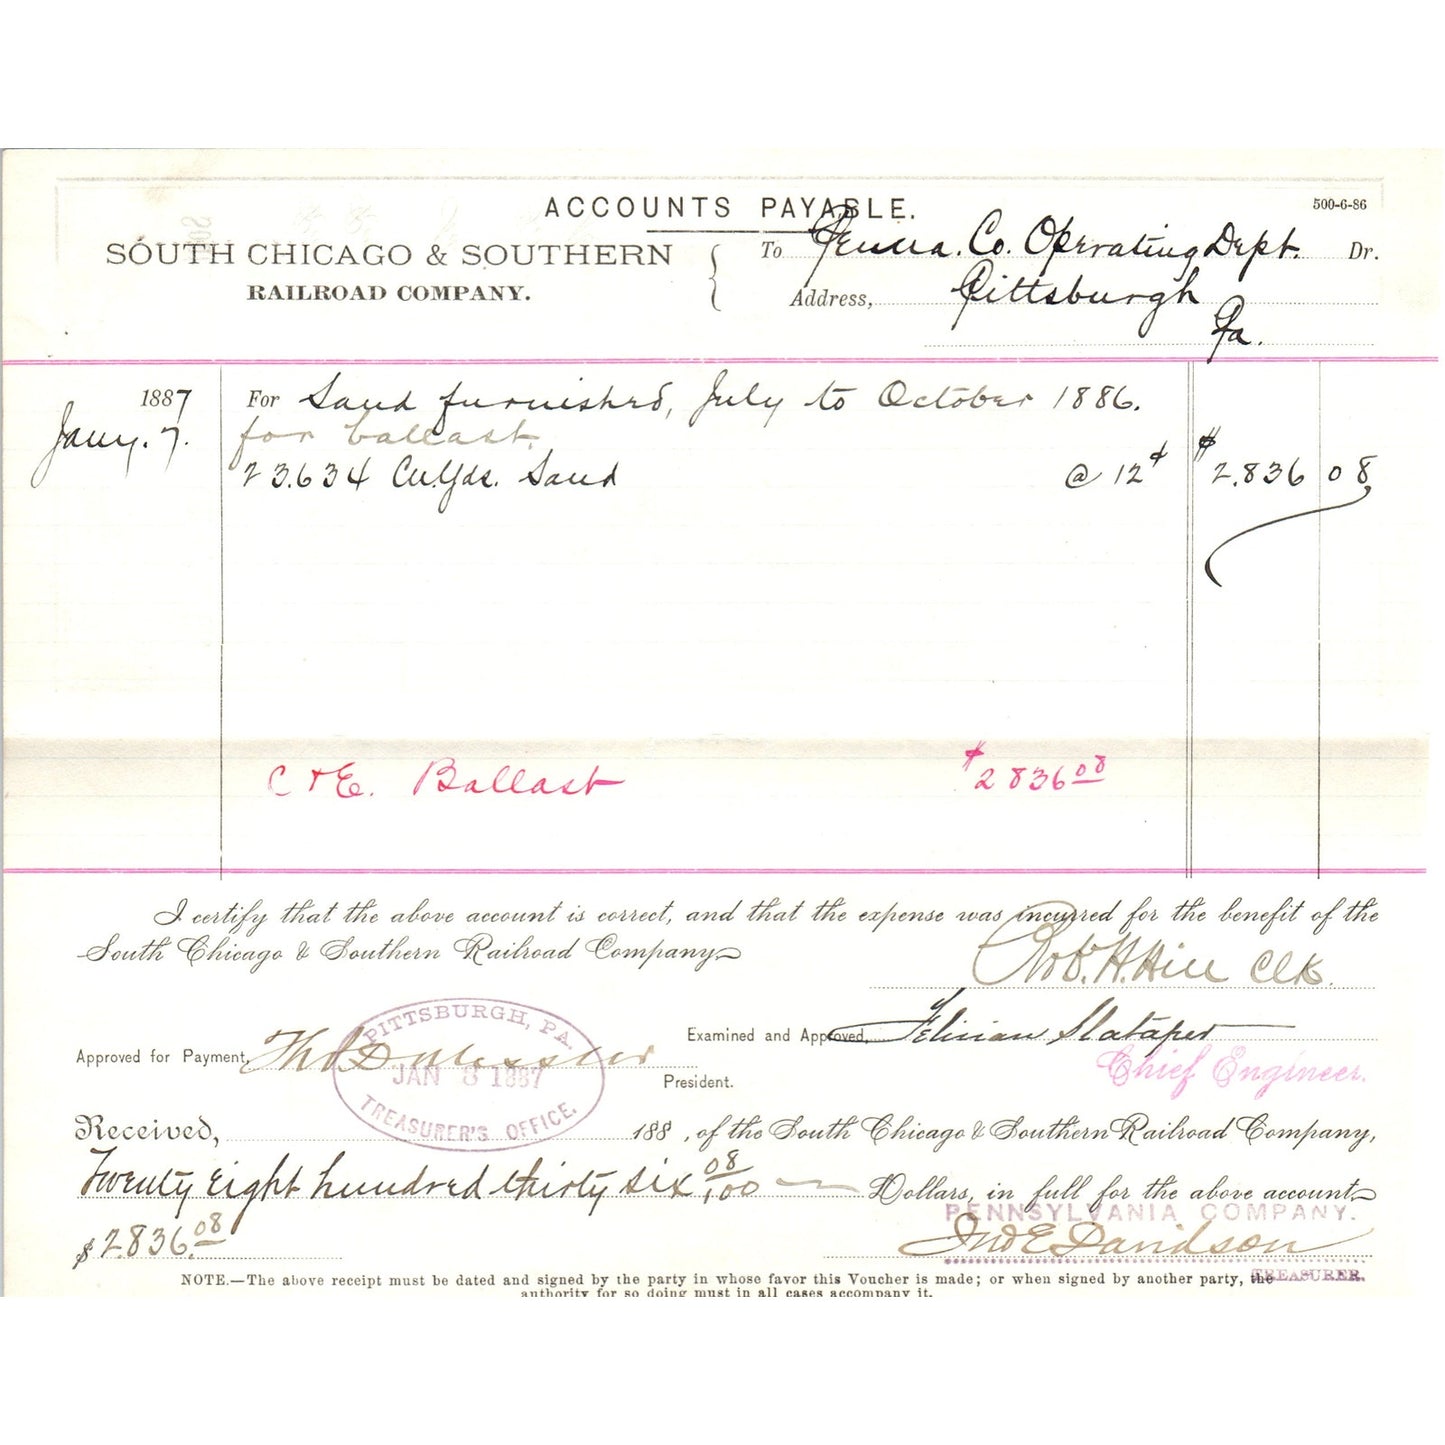 ACCOUNTS PAYABLE.
500-6-86
SOUTH CHICAGO & SOUTHERN
RAILROAD COMPANY.
To Penna. Co. Operating Dept. Dr.
Address, Pittsburgh
Pa.
1887 For Sand furnished, July to October 1886.
Jany. 7. for ballast.
23.634 Cu.Yds. Sand @ 12¢ $2.836 08
C & E. Ballast $2836 08
I certify that the above account is correct, and that the expense was incurred for the benefit of the
South Chicago & Southern Railroad Company
Robt. H. Hill Clk.
Examined and Approved, Felician Slataper
Chief Engineer.
Approved for Payment, Thos D Messler
President.
PITTSBURGH, PA.
JAN 8 1887
TREASURER'S OFFICE.
Received, 188 , of the South Chicago & Southern Railroad Company,
Twenty eight hundred thirty six 08/100 Dollars, in full for the above account
PENNSYLVANIA COMPANY.
$2836.08 Jno E Davidson
TREASURER.
NOTE.—The above receipt must be dated and signed by the party in whose favor this Voucher is made; or when signed by another party, the
authority for so doing must in all cases accompany it.